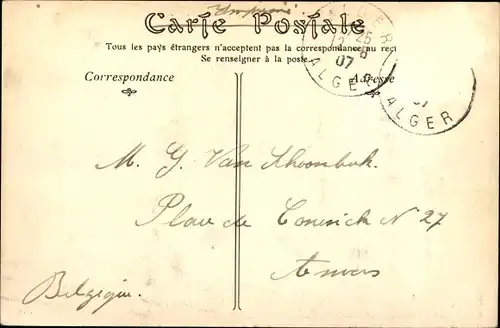 Imprimé
Carte Postale
Tous les pays étrangers n'acceptent pas la correspondance au rect
Se renseigner à la poste.
Correspondance
Adresse
ALGER
25
07
ALGER
07
ALGER
M. G. Van Schoonbek.
Place de N 27
Anvers
Belgique.